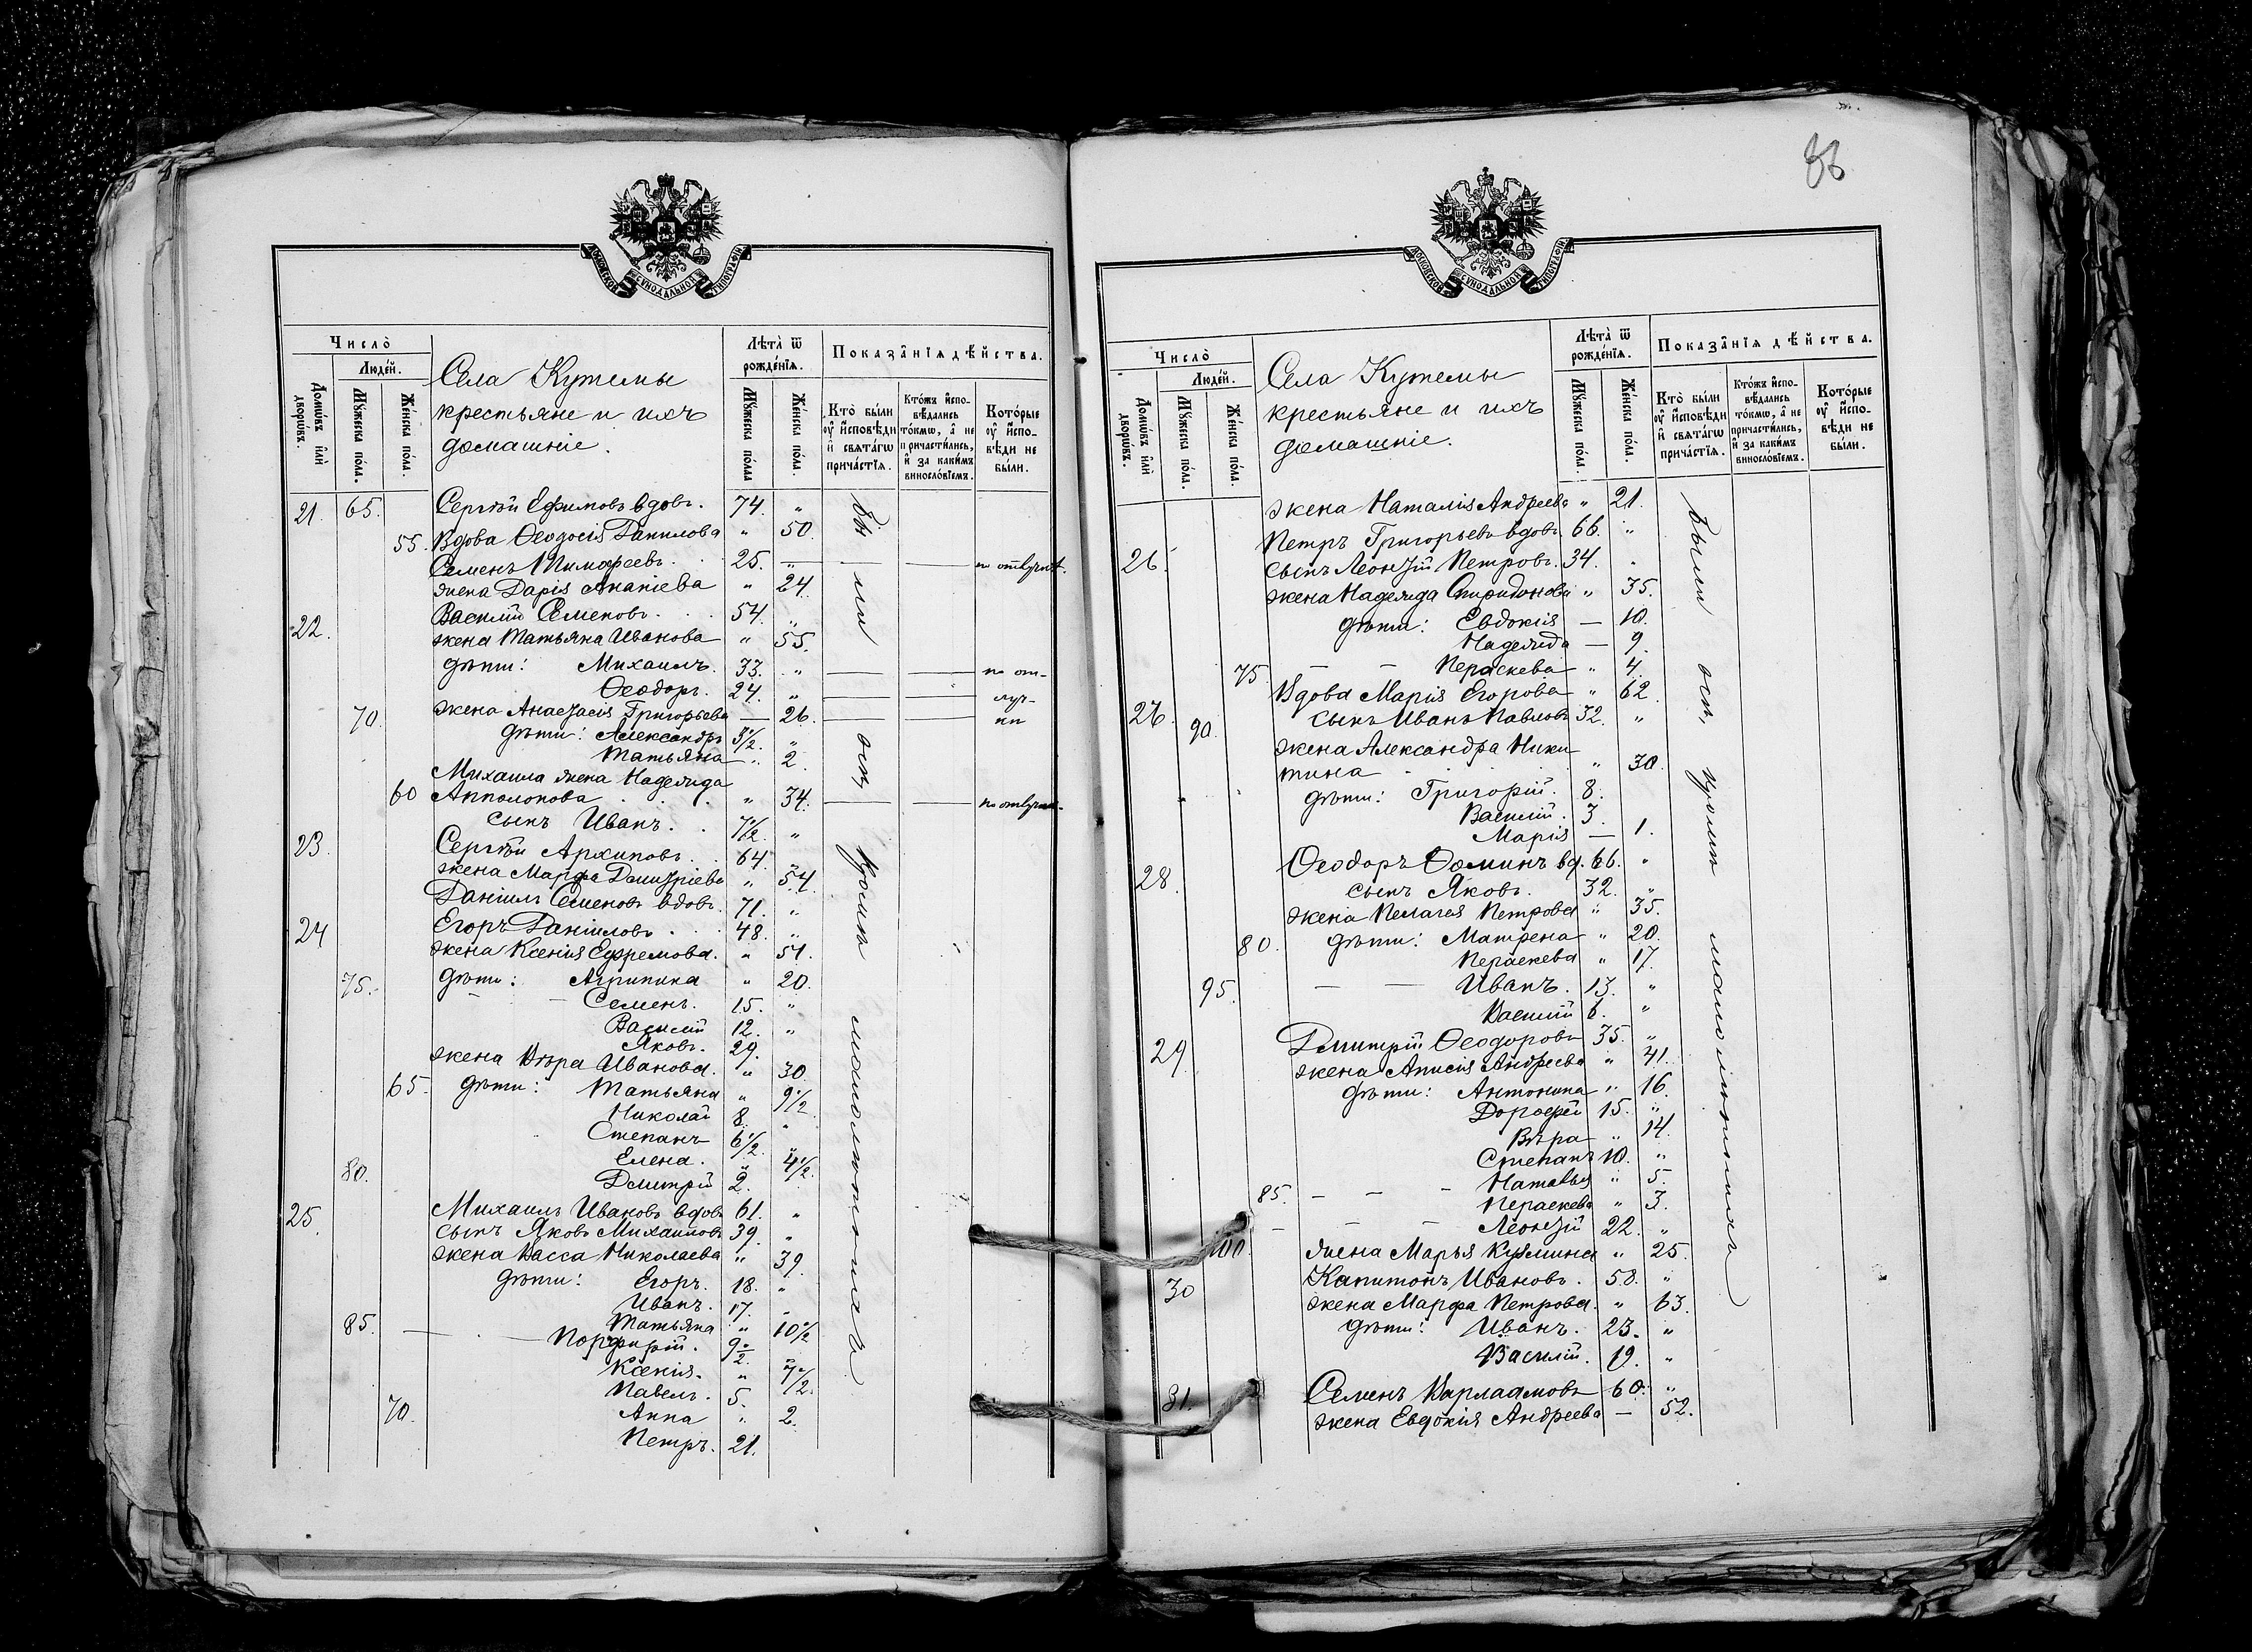 МОСКОВСКОЙ СѴНОДАЛЬНОЙ ТИПОГРАФІИ
Число̀
Люде́й.
Домѡ́въ и҆лѝ дворѡ́въ.
Мꙋ́жеска по́ла.
Же́нска по́ла.
Села Кутемы
крестьяне и ихъ
домашніе.
Лѣта̀ ѿ рожде́нїѧ.
Мꙋ́жеска по́ла
Же́нска по́ла.
Показа̑нїѧ дѣ́йства.
Кто̀ бы́ли ᲂу҆ и҆сповѣ́ди и҆ свѧта́гѡ прича́стїѧ.
Кто́жъ и҆сповѣ́дались то́кмѡ, а҆ не причасти́лись, и҆ за каки́мъ винословїемъ.
Кото́рые ᲂу҆ и҆сповѣ́ди не бы́ли.
21. 65. Сергѣй Ефимовъ вдов. 74. „
55. Вдова Ѳеодосія Данилова „ 50.
Семенъ Тимофеевъ. 25. „ по отлучк.
жена Дарія Ананіева „ 24.
22. Василій Семеновъ. 54. „
жена Татьяна Иванова „ 55.
дѣти: Михаилъ. 33. „ по от-
Ѳеодоръ. 24. „ луч-
70. жена Анастасія Григорьева — 26. ки
дѣти: Александръ 3 1/2. „
Татьяна „ 2.
Михаила жена Надежда
60 Апполонова „ 34. по отлучк.
сынъ Иванъ. 7 1/2. „
23. Сергѣй Архиповъ. 64. „
жена Марфа Димитріева „ 54.
Даніилъ Семеновъ вдовъ. 71. „
24 Егоръ Даніиловъ. 48. „
жена Ксенія Ефремова. „ 51.
75. дѣти: Агрипина „ 20.
Семенъ. 15. „
Василій 12. „
Яковъ. 29.
жена Вѣра Иванова. „ 30
65. дѣти: Татьяна „ 9 1/2.
Николай 8. „
Степанъ 6 1/2. „
Елена. „ 4 1/2.
80. Дмитрій 2.
25. Михаилъ Ивановъ вдовъ 61. „
сынъ Яковъ Михаиловъ 39. „
жена Васса Николаева „ 39.
дѣти: Егоръ. 18. „
Иванъ. 17. „
85. Татьяна „ 10 1/2
Порфирій. 9 1/2.
Ксенія. „ 7 1/2.
Павелъ. 5.
70. Анна „ 2.
Петръ. 21.
Бы ли всѣ, кромѣ малолѣтнихъ
МОСКОВСКОЙ СѴНОДАЛЬНОЙ ТИПОГРАФІИ
Число̀
Люде́й.
Домѡ́въ и҆лѝ дворѡ́въ.
Мꙋ́жеска по́ла.
Же́нска по́ла.
Села Кутемы
крестьяне и ихъ
домашніе.
Лѣта̀ ѿ рожде́нїѧ.
Мꙋ́жеска по́ла.
Же́нска по́ла.
Показа̑нїѧ дѣ́йства.
Кто̀ бы́ли ᲂу҆ и҆сповѣ́ди и҆ свѧта́гѡ прича́стїѧ.
Кто́жъ и҆сповѣ́дались то́кмѡ, а҆ не причасти́лись, и҆ за каки́мъ винословїемъ.
Кото́рые ᲂу҆ и҆сповѣ́ди не бы́ли.
жена Наталія Андреева „ 21.
Петръ Григорьевъ вдовъ. 66. „
26. сынъ Леонтій Петровъ. 34. „
жена Надежда Спиридонова „ 35.
дѣти: Евдокія — 10.
Надежда — 9.
75. Параскева „ 4.
Вдова Марія Егорова „ 62
27. 90. сынъ Иванъ Павловъ 32. „
жена Александра Ники
тина „ 30.
дѣти: Григорій. 8.
Василій. 3.
Марія — 1.
28. Ѳеодоръ Ѳоминъ вд. 66. „
сынъ Яковъ. 32. „
жена Пелагея Петрова „ 35.
80. дѣти: Матрена „ 20.
Параскева „ 17.
95. Иванъ. 13. „
Василій 6. „
29. Дмитрій Ѳеодоровъ 35. „
жена Анисія Андреева „ 41.
дѣти: Антонина „ 16.
Дорофей 15. „
Вѣра „ 14.
Степанъ 10. „
85. Наталья „ 5.
Параскева „ 3.
Леонтій 22. „
100. жена Марья Кузмина „ 25.
30 Капитонъ Ивановъ. 58. „
жена Марфа Петрова. „ 63.
дѣти: Иванъ. 23. „
Василій. 19. „
31. Семенъ Варлаамовъ 60. „
жена Евдокія Андреева — 52.
Были всѣ, кромѣ малолѣтнихъ